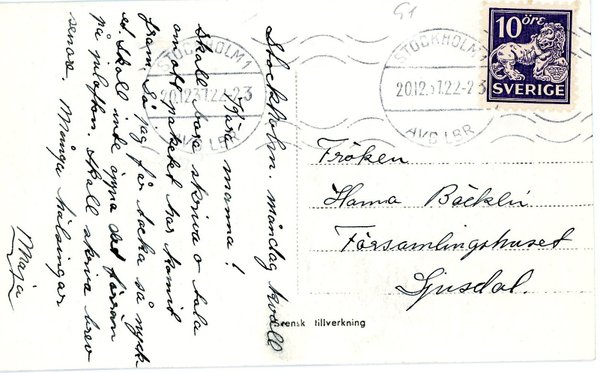 Stockholm. måndag kväll
Kära manna!
Skall bara skriva o tala
om att paketet har kommit
fram. Så jag får tacka så myck-
et. Skall inte öppna det förrän
på julafton. Skall skriva brev
senare. Många hälsningar
Maja
51
STOCKHOLM 1
20.12.37.22-2 3
AVG LBR
STOCKHOLM 1
20.12.37.22-2 3
AVG LBR
10 ÖRE
SVERIGE
Fröken
Hanna Bäcklin
Församlingshuset
Ljusdal.
Svensk tillverkning